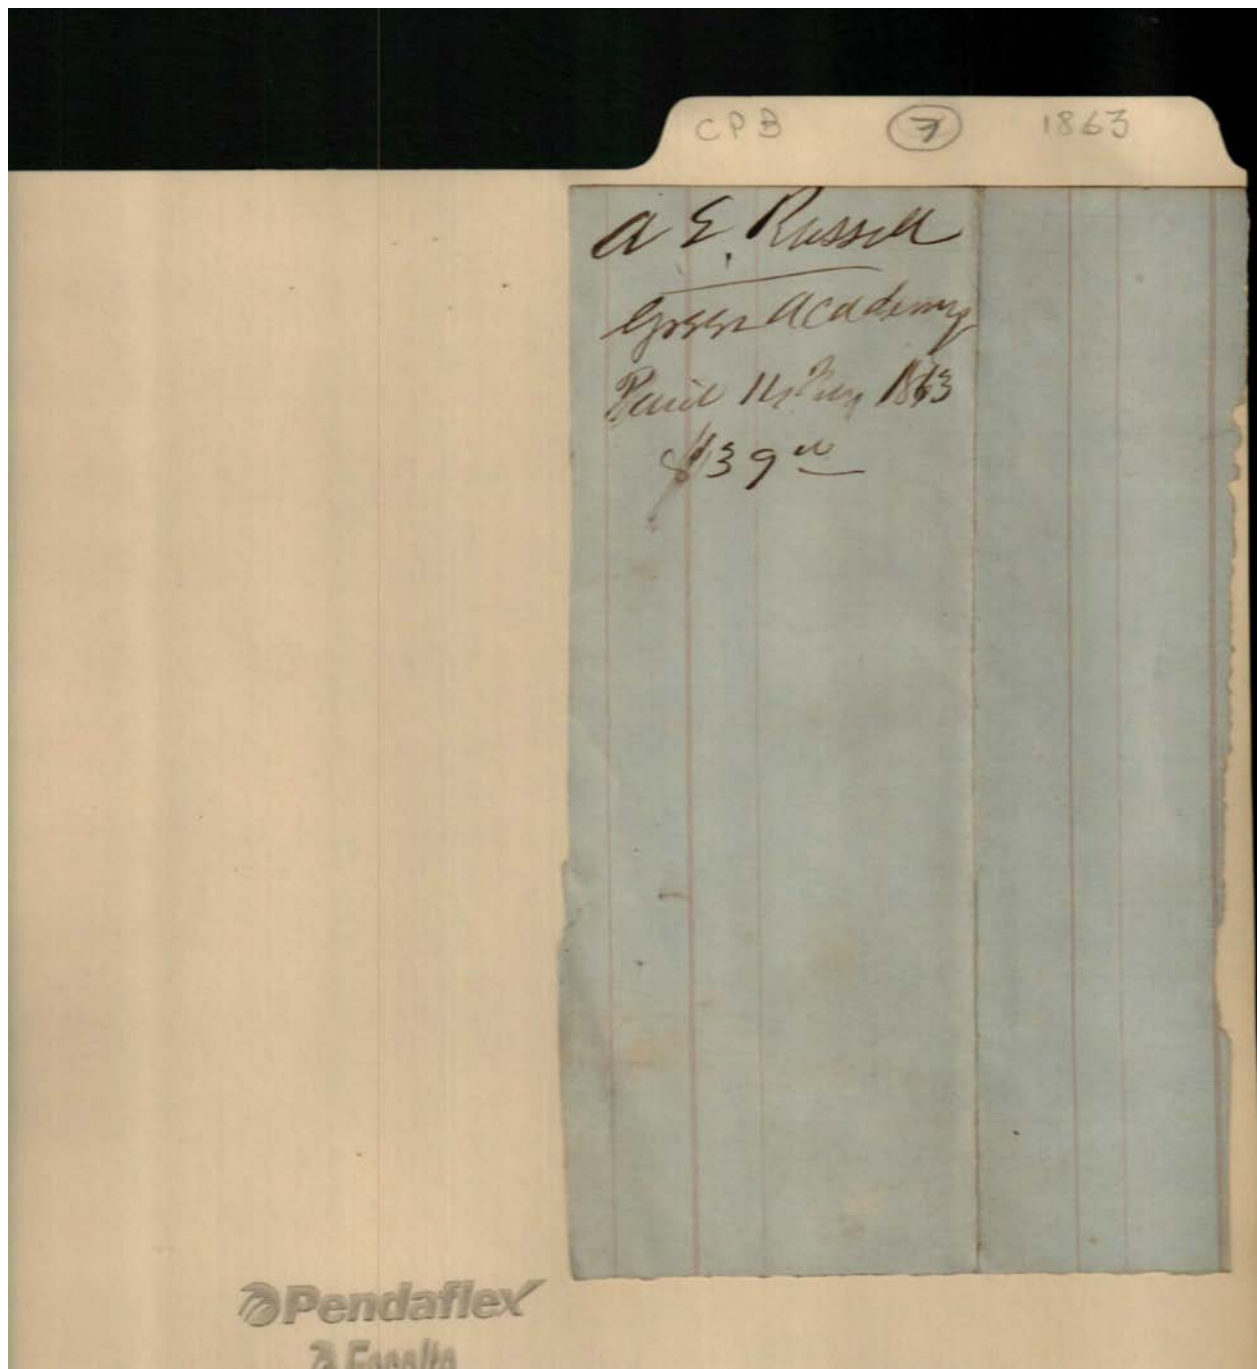 CPB 7 1863
A E. Russell
Green Academy
Paid 14 1863
$39 00
Pendaflex
Esselte